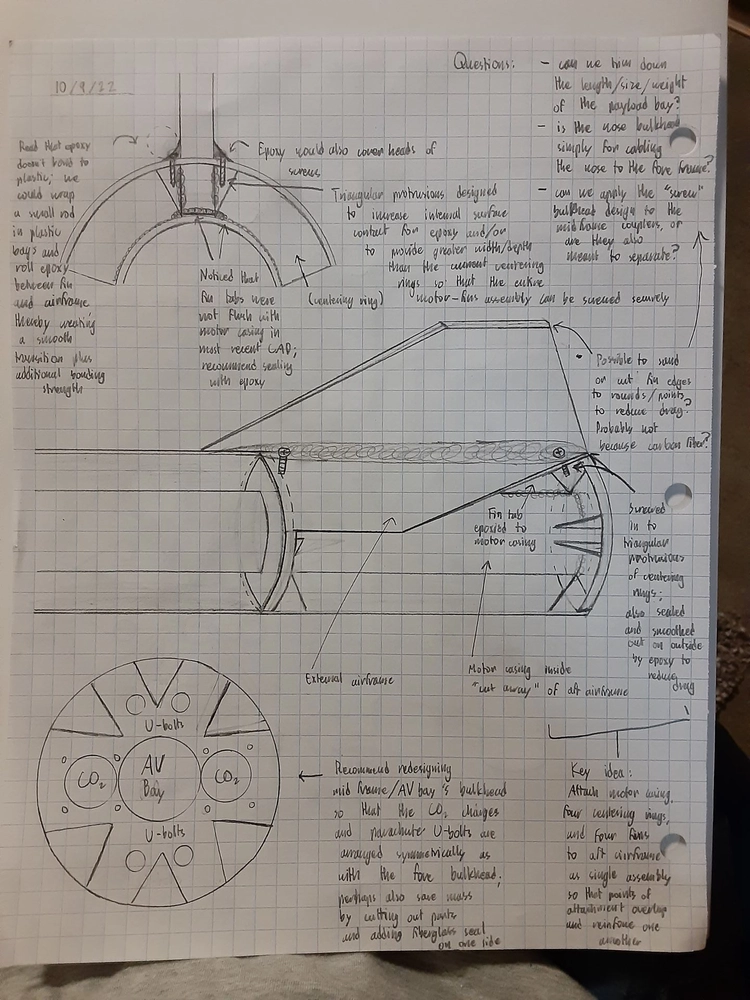 10/9/22
Questions:
- can we trim down
the length/size/weight
of the payload bay?
- is the nose bulkhead
simply for cabling
the nose to the fore frame?
- can we apply the "screw"
bulkhead design to the
midframe couplers, or
are they also
meant to separate?
Read that epoxy
doesn't bond to
plastic; we
could wrap
a small rod
in plastic
bags and
roll epoxy
between fin
and airframe
thereby creating
a smooth
transition plus
additional bonding
strength
Epoxy would also cover heads of
screws
Triangular protrusions designed
to increase internal surface
contact for epoxy and/or
to provide greater width/depth
than the current centering
rings so that the entire
motor-fins assembly can be screwed securely
Noticed that
fin tabs were
not flush with
motor casing in
most recent CAD;
recommend sealing
with epoxy
(centering ring)
Possible to sand
or cut fin edges
to rounds/points
to reduce drag?
Probably not
because carbon fiber?
Fin tab
epoxied to
motor casing
Screwed
in to
triangular
protrusions
of centering
rings;
also sealed
and smoothed
out on outside
by epoxy to
reduce
drag
External airframe
Motor casing inside
"cut away" of aft airframe
U-bolts
CO2
AV
Bay
CO2
U-bolts
Recommend redesigning
mid frame/AV bay's bulkhead
so that the CO2 charges
and parachute U-bolts are
arranged symmetrically as
with the fore bulkhead;
perhaps also save mass
by cutting out parts
and adding fiberglass seal
on one side
Key idea:
Attach motor casing,
four centering rings,
and four fins
to aft airframe
as single assembly
so that points of
attachment overlap
and reinforce one
another